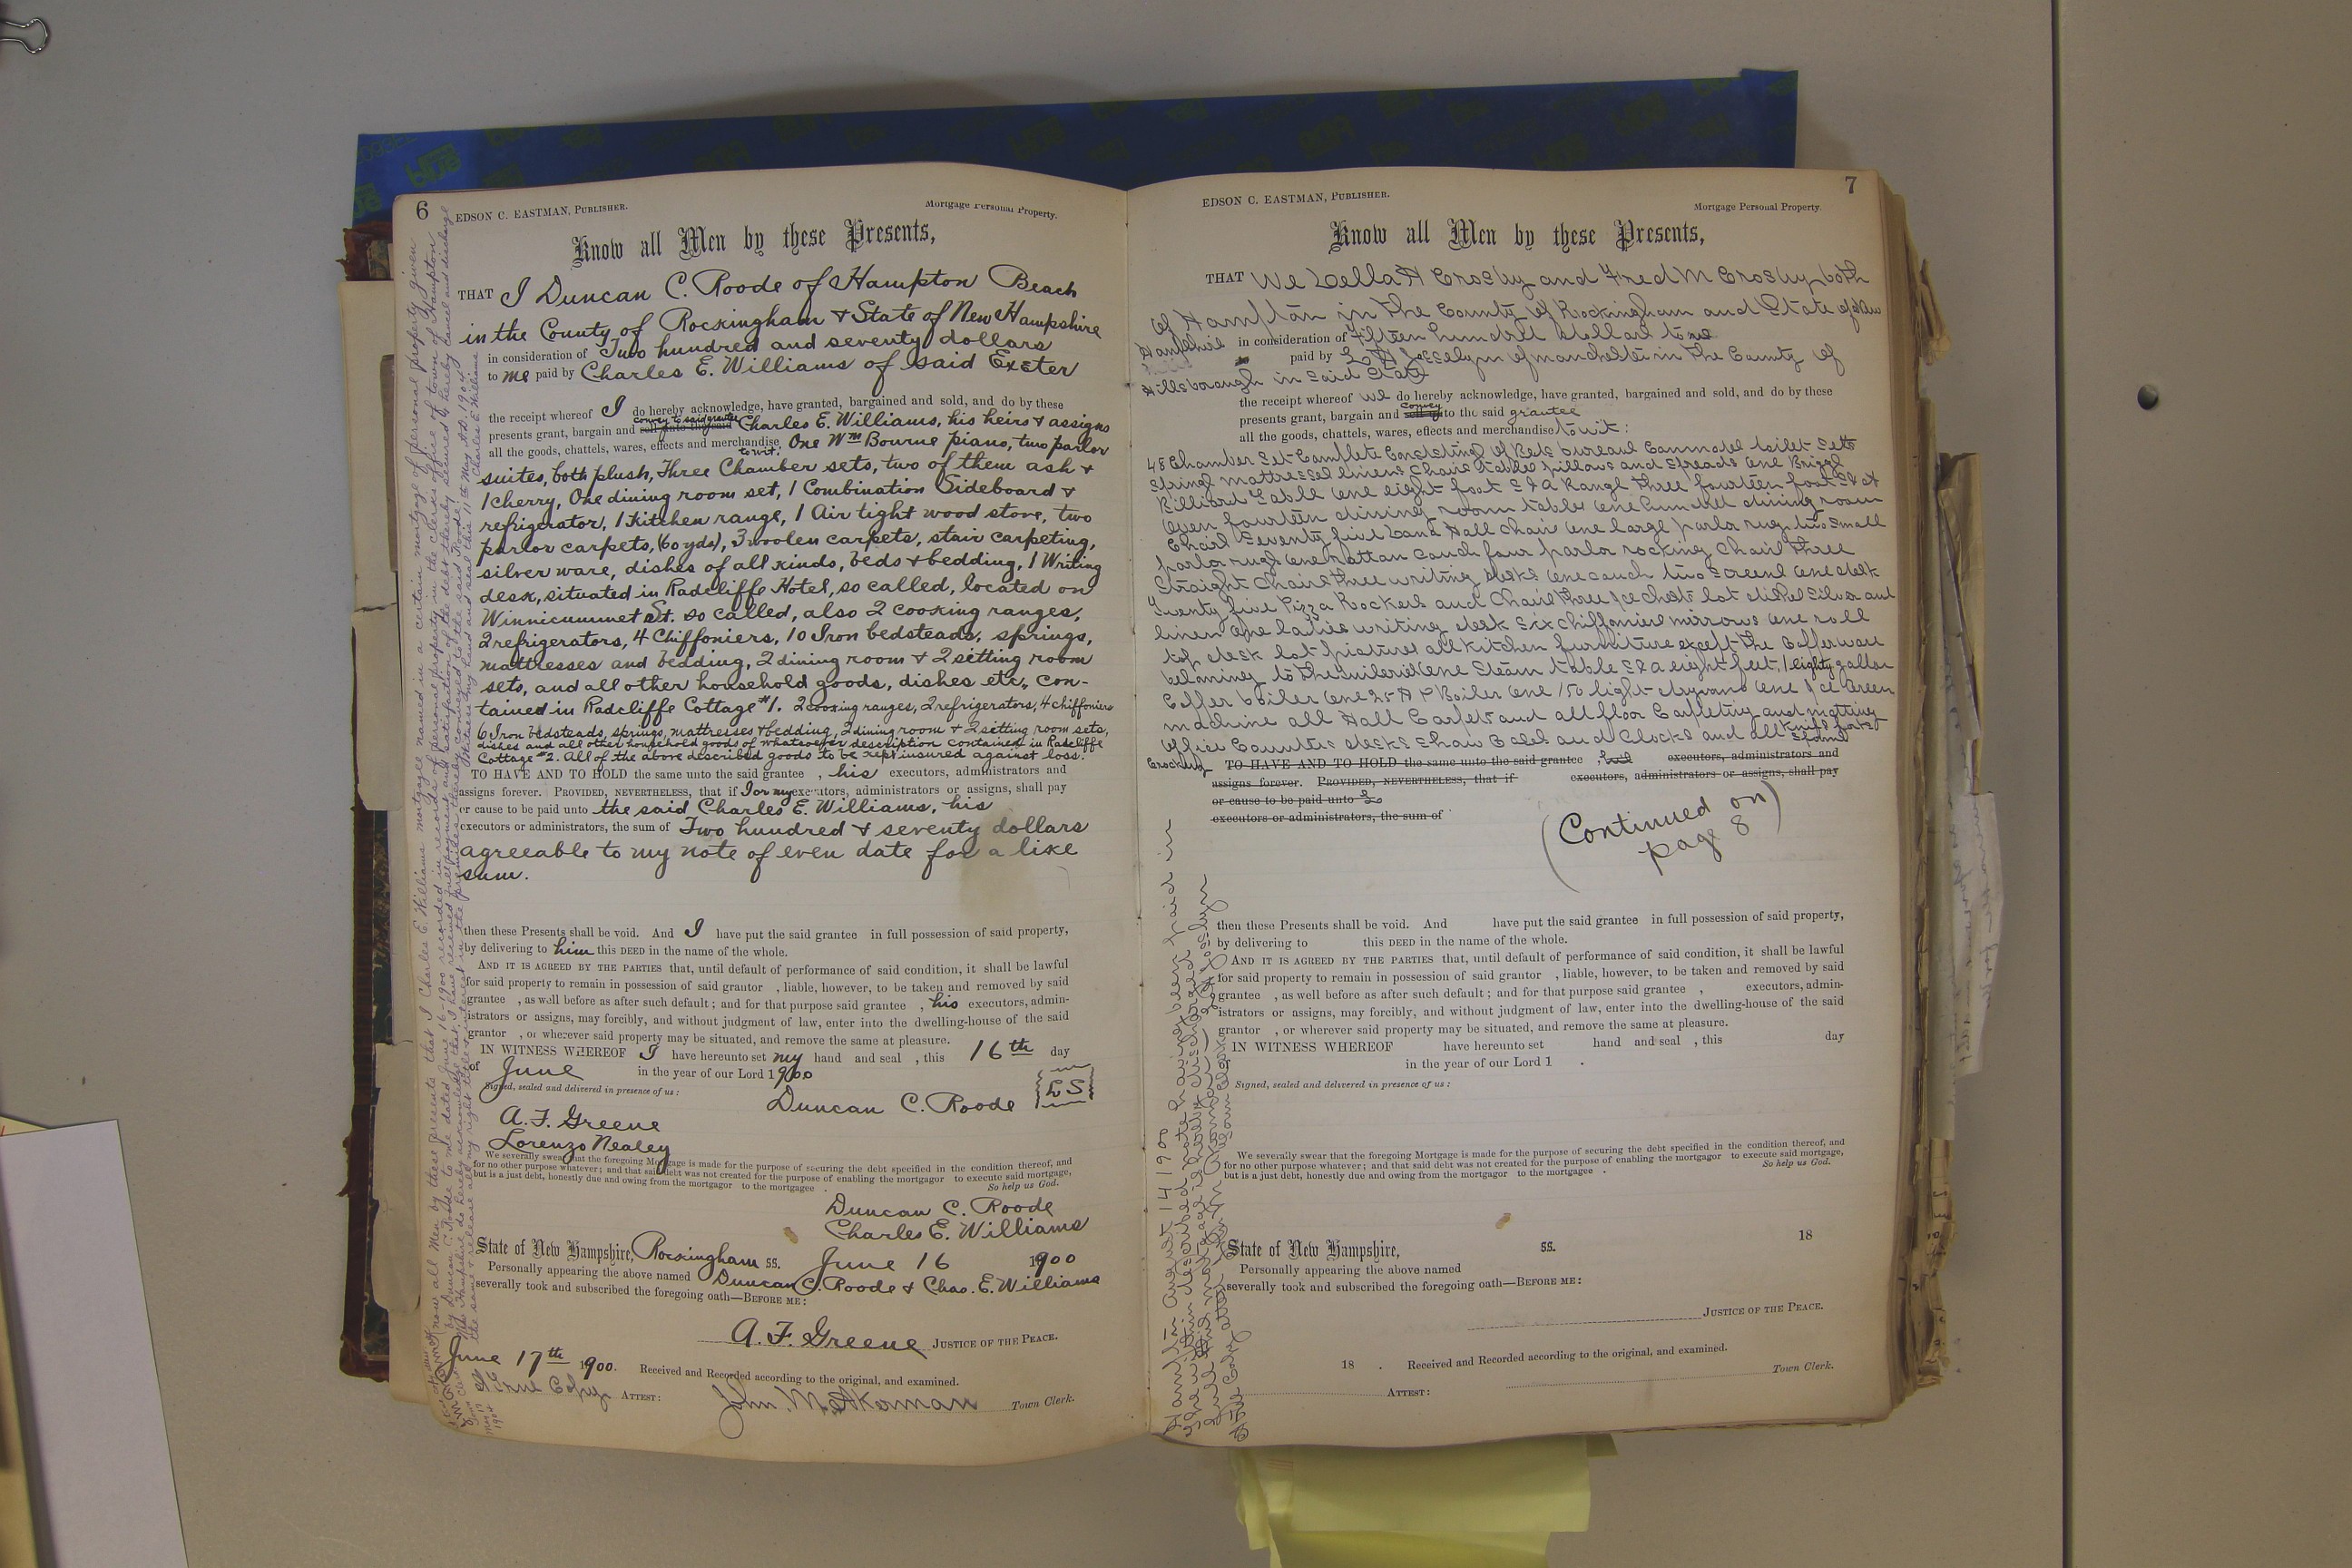 6
EDSON C. EASTMAN, PUBLISHER.
Mortgage Personal Property.
Know all Men by these Presents,
THAT I Duncan C. Roode of Hampton Beach
in the County of Rockingham & State of New Hampshire
in consideration of Two hundred and seventy dollars
to me paid by Charles E. Williams of said Exeter
the receipt whereof I do hereby acknowledge, have granted, bargained and sold, and do by these
convey to said grantee
presents grant, bargain and sell unto the said Charles E. Williams, his heirs & assigns
all the goods, chattels, wares, effects and merchandise, to wit: One Wm Bourne piano, two parlor
suites, both plush, Three Chamber sets, two of them ash &
1 cherry, One dining room set, 1 Combination Sideboard &
refrigerator, 1 kitchen range, 1 Air tight wood stove, two
parlor carpets, (60 yds), 3 woolen carpets, stair carpeting,
silver ware, dishes of all kinds, beds & bedding, 1 Writing
desk, situated in Radcliffe Hotel, so called, located on
Winnicummet St. so called, also 2 cooking ranges,
2 refrigerators, 4 Chiffoniers, 10 Iron bedsteads, springs,
mattresses and bedding, 2 dining room & 2 setting room
sets, and all other household goods, dishes etc., con-
tained in Radcliffe Cottage #1. 2 cooking ranges, 2 refrigerators, 4 chiffoniers
6 Iron bedsteads, springs, mattresses & bedding, 2 dining room & 2 setting room sets,
dishes and all other household goods of whatsoever description contained in Radcliffe
Cottage #2. All of the above described goods to be kept insured against loss.
TO HAVE AND TO HOLD the same unto the said grantee , his executors, administrators and
assigns forever. PROVIDED, NEVERTHELESS, that if I or my executors, administrators or assigns, shall pay
or cause to be paid unto the said Charles E. Williams, his
executors or administrators, the sum of Two hundred & seventy dollars
agreeable to my note of even date for a like
sum.
then these Presents shall be void. And I have put the said grantee in full possession of said property,
by delivering to him this DEED in the name of the whole.
AND IT IS AGREED BY THE PARTIES that, until default of performance of said condition, it shall be lawful
for said property to remain in possession of said grantor , liable, however, to be taken and removed by said
grantee , as well before as after such default ; and for that purpose said grantee , his executors, admin-
istrators or assigns, may forcibly, and without judgment of law, enter into the dwelling-house of the said
grantor , or wherever said property may be situated, and remove the same at pleasure.
IN WITNESS WHEREOF I have hereunto set my hand and seal , this 16th day
of June in the year of our Lord 1900
Signed, sealed and delivered in presence of us :
Duncan C. Roode LS
A. F. Greene
Lorenzo Nealey
We severally swear that the foregoing Mortgage is made for the purpose of securing the debt specified in the condition thereof, and
for no other purpose whatever ; and that said debt was not created for the purpose of enabling the mortgagor to execute said mortgage,
but is a just debt, honestly due and owing from the mortgagor to the mortgagee .
So help us God.
Duncan C. Roode
Charles E. Williams
State of New Hampshire, Rockingham ss. June 16 1900
Personally appearing the above named Duncan C. Roode & Chas. E. Williams
severally took and subscribed the foregoing oath—BEFORE ME :
A. F. Greene JUSTICE OF THE PEACE.
June 17th 1900. Received and Recorded according to the original, and examined.
ATTEST : John M. Akerman Town Clerk.
Know all Men by these presents that I Charles E. Williams mortgagee named in a certain mortgage of personal property given
by Duncan C. Roode to me dated June 16-1900 recorded in records of personal property in the clerks office of town of Hampton
New Hampshire do hereby acknowledge that I have received full payment and satisfaction of the debt thereby secured & hereby cancel and discharge
the same & release all my right title & interest in the premises thereby conveyed to the said Roode.
Witness my hand and seal this 11th May A.D. 1904
Charles E. Williams
7
EDSON C. EASTMAN, PUBLISHER.
Mortgage Personal Property.
Know all Men by these Presents,
THAT We Lella A Crosby and Fred M Crosby both
of Hampton in the County of Rockingham and State of New
Hampshire in consideration of Fifteen hundred dollars to us
paid by Josselyn of manchester in the County of
Hillsborough in said State
the receipt whereof we do hereby acknowledge, have granted, bargained and sold, and do by these
presents grant, bargain and sell unto convey to the said grantee
all the goods, chattels, wares, effects and merchandise to wit :
48 Chamber Set Complete Consisting of Beds bureaus Commodes toilet setts
Springs mattresses linens Chairs tables pillows and spreads one Briggs
Billiard Table one eight foot range three fourteen foot
oven fourteen dining room tables one hundred dining room
Chairs Seventy five Hall chairs one large parlor rug two small
parlor rugs one rattan couch four parlor rocking chairs three
Straight Chairs three writing desks one couch two screens one desk
Twenty five Pizza Rockers and Chairs three Ice chests lot dishes silver and
linen one ladies writing desk six chiffoniers mirrors one roll
top desk lot pictures all kitchen furniture except the Copperware
belonging to the one Steam table eight feet, 1 eighty gallon
Coffee boiler one 25 H P Boiler one 150 light dynamo one Ice Cream
machine all Hall Carpets and all floor Carpeting and matting
office Counters desks Show Cases and Clocks and all knifs forks
spoons
Crockery TO HAVE AND TO HOLD the same unto the said grantee , executors, administrators and
assigns forever. PROVIDED, NEVERTHELESS, that if executors, administrators or assigns, shall pay
or cause to be paid unto
executors or administrators, the sum of
(Continued on
page 8)
then these Presents shall be void. And have put the said grantee in full possession of said property,
by delivering to this DEED in the name of the whole.
AND IT IS AGREED BY THE PARTIES that, until default of performance of said condition, it shall be lawful
for said property to remain in possession of said grantor , liable, however, to be taken and removed by said
grantee , as well before as after such default ; and for that purpose said grantee , executors, admin-
istrators or assigns, may forcibly, and without judgment of law, enter into the dwelling-house of the said
grantor , or wherever said property may be situated, and remove the same at pleasure.
IN WITNESS WHEREOF have hereunto set hand and seal , this day
in the year of our Lord 1 .
Signed, sealed and delivered in presence of us :
We severally swear that the foregoing Mortgage is made for the purpose of securing the debt specified in the condition thereof, and
for no other purpose whatever ; and that said debt was not created for the purpose of enabling the mortgagor to execute said mortgage,
but is a just debt, honestly due and owing from the mortgagor to the mortgagee .
So help us God.
State of New Hampshire, ss. 18
Personally appearing the above named
severally took and subscribed the foregoing oath—BEFORE ME :
JUSTICE OF THE PEACE.
18 . Received and Recorded according to the original, and examined.
ATTEST : Town Clerk.
Hampton August 14 1900